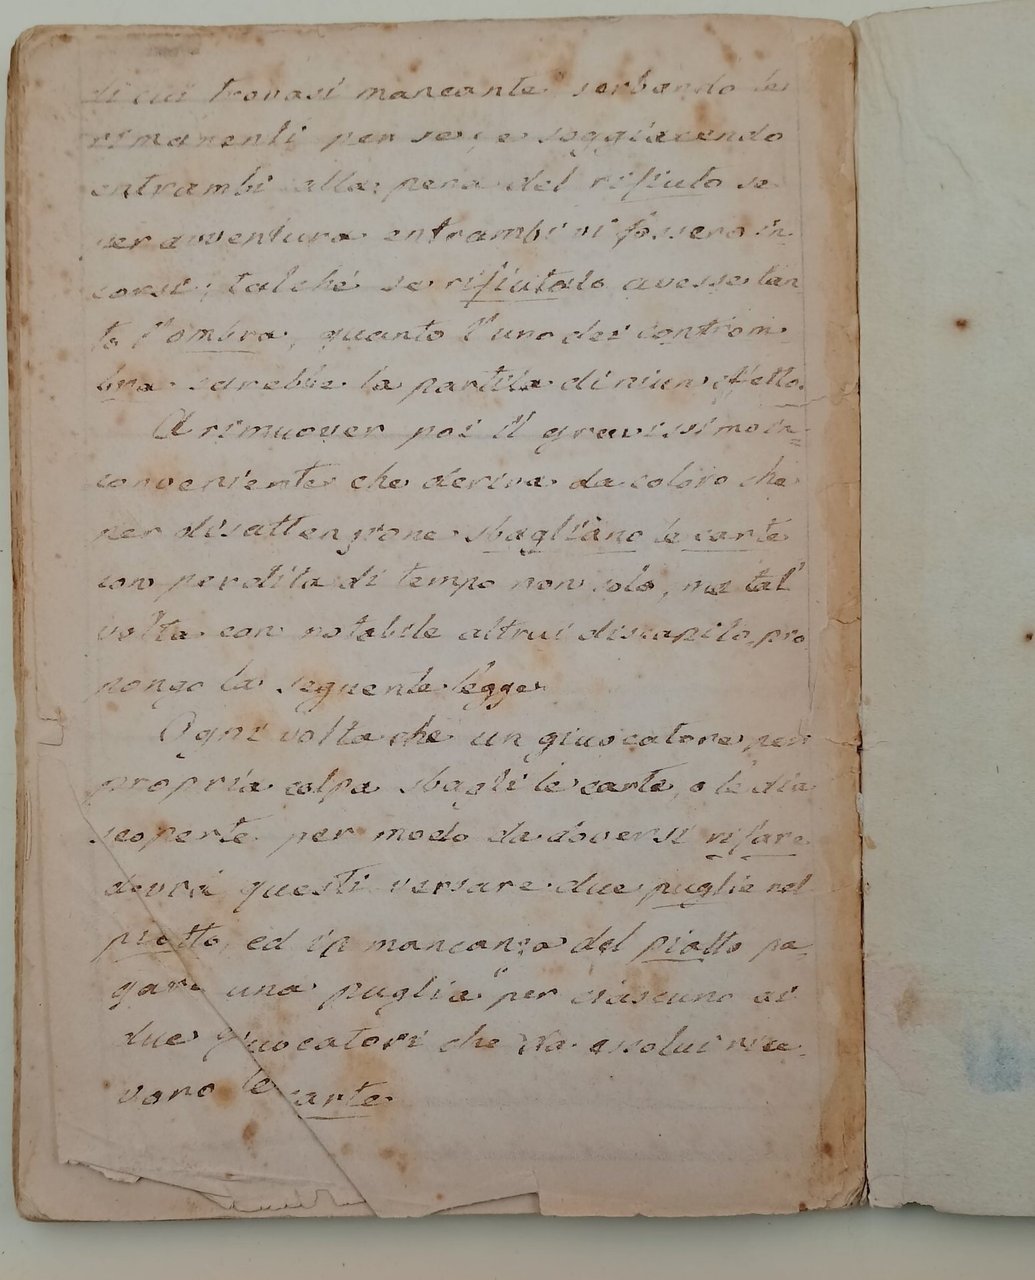 di cui trovasi mancante serbando le
rimanenti per se, e soggiacendo
entrambi alla pena del rifiuto se
per avventura entrambi vi fossero in
corsi; talché se rifiutato avesse tan
to l'ombra, quanto l'uno dei controm
bra sarebbe la partita di niun effetto.
A rimuover poi il gravissimo in=
conveniente che deriva da coloro che
per disattenzione sbagliano le carte
con perdita di tempo non solo, ma tal'
volta con notabile altrui discapito, pro
pongo la seguente legge
Ogni volta che un giuocatore per
propria colpa sbagli le carte, o le dia
scoperte per modo da doversi rifare
dovrà questi versare due puglie nel
piatto, ed in mancanza del piatto pa
gare una puglia per ciascuno ai
due giuocatori che da esso lui rice
vono le carte.